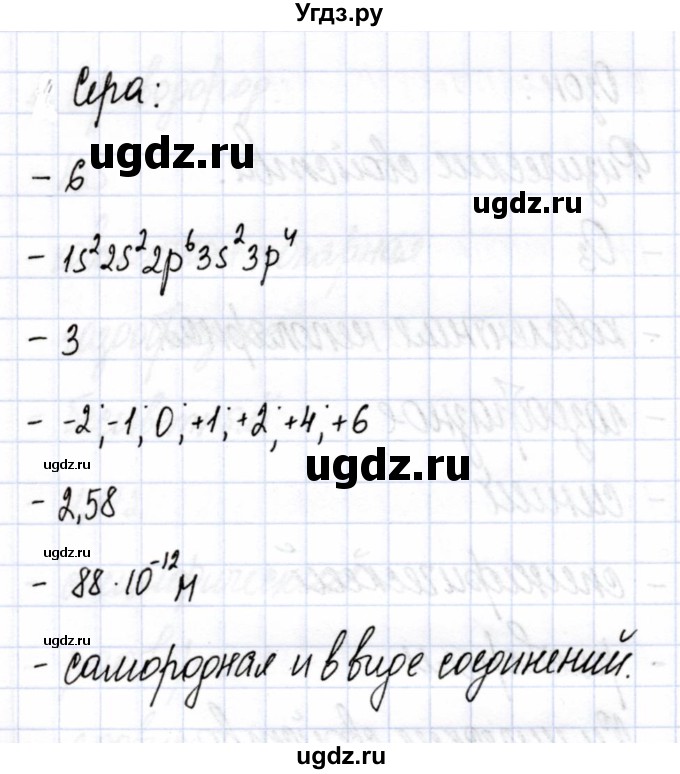 Угдз.ру
Сера:
ugdz.ru
- 6
ugdz.ru
- 1s²2s²2p⁶3s²3p⁴
- 3
- -2; -1; 0; +1; +2; +4; +6
ugdz.ru
ugdz.ru
- 2,58
- 88·10⁻¹²м
ugdz.ru
- самородная и в виде соединений.
ugdz.ru